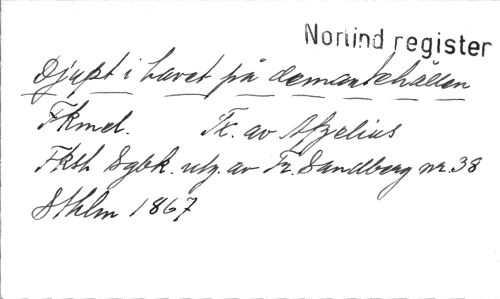 Norlind register
Djupt i havet på demantehällen
Fkmel. Tx. av Afzelius
Fksk Sgbk. utg. av Fr. Sandberg nr. 38
Sthlm 1867